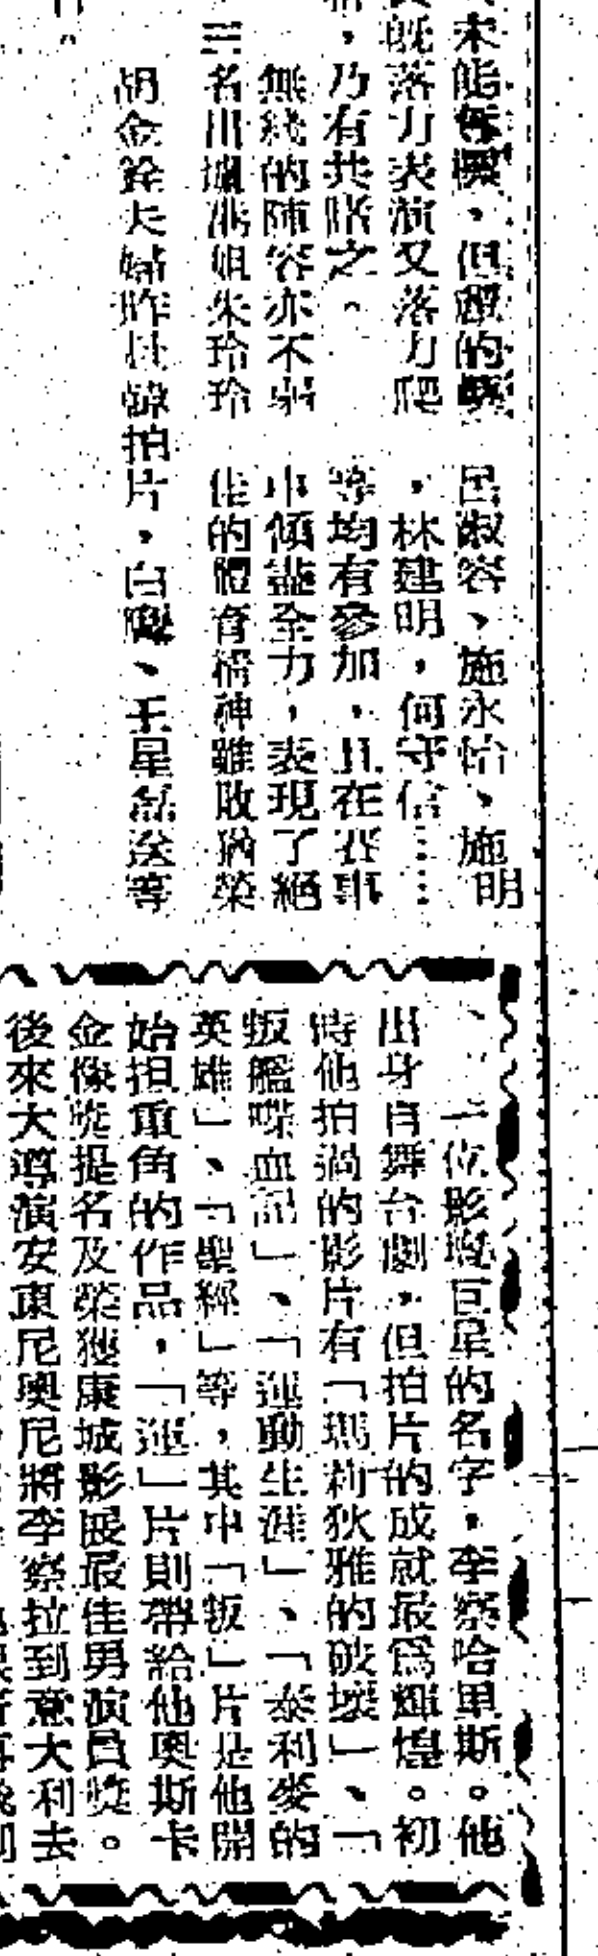 未能奪標，但獲的獎
既落力表演又落力爬
，乃有共睹之。
無綫的陣容亦不弱
三名出爐港姐朱玲玲
呂淑容、施永怡、施明
，林建明，何守信……
等均有參加，且在賽事
中傾盡全力，表現了絕
佳的體育精神雖敗猶榮
胡金銓夫婦昨赴韓拍片，白鷹、王星磊送等
一位影壇巨星的名字，李察哈里斯。他
出身自舞台劇，但拍片的成就最爲輝煌。初
時他拍過的影片有「瑪莉狄雅的破壞」、「
叛艦喋血記」、「運動生涯」、「泰利麥的
英雄」、「聖經」等，其中「叛」片是他開
始担重角的作品，「運」片則帶給他奧斯卡
金像獎提名及榮獲康城影展最佳男演員獎。
後來大導演安東尼奧尼將李察拉到意大利去